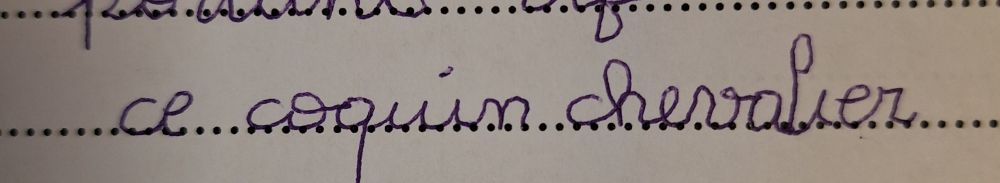 ce coquin chevalier